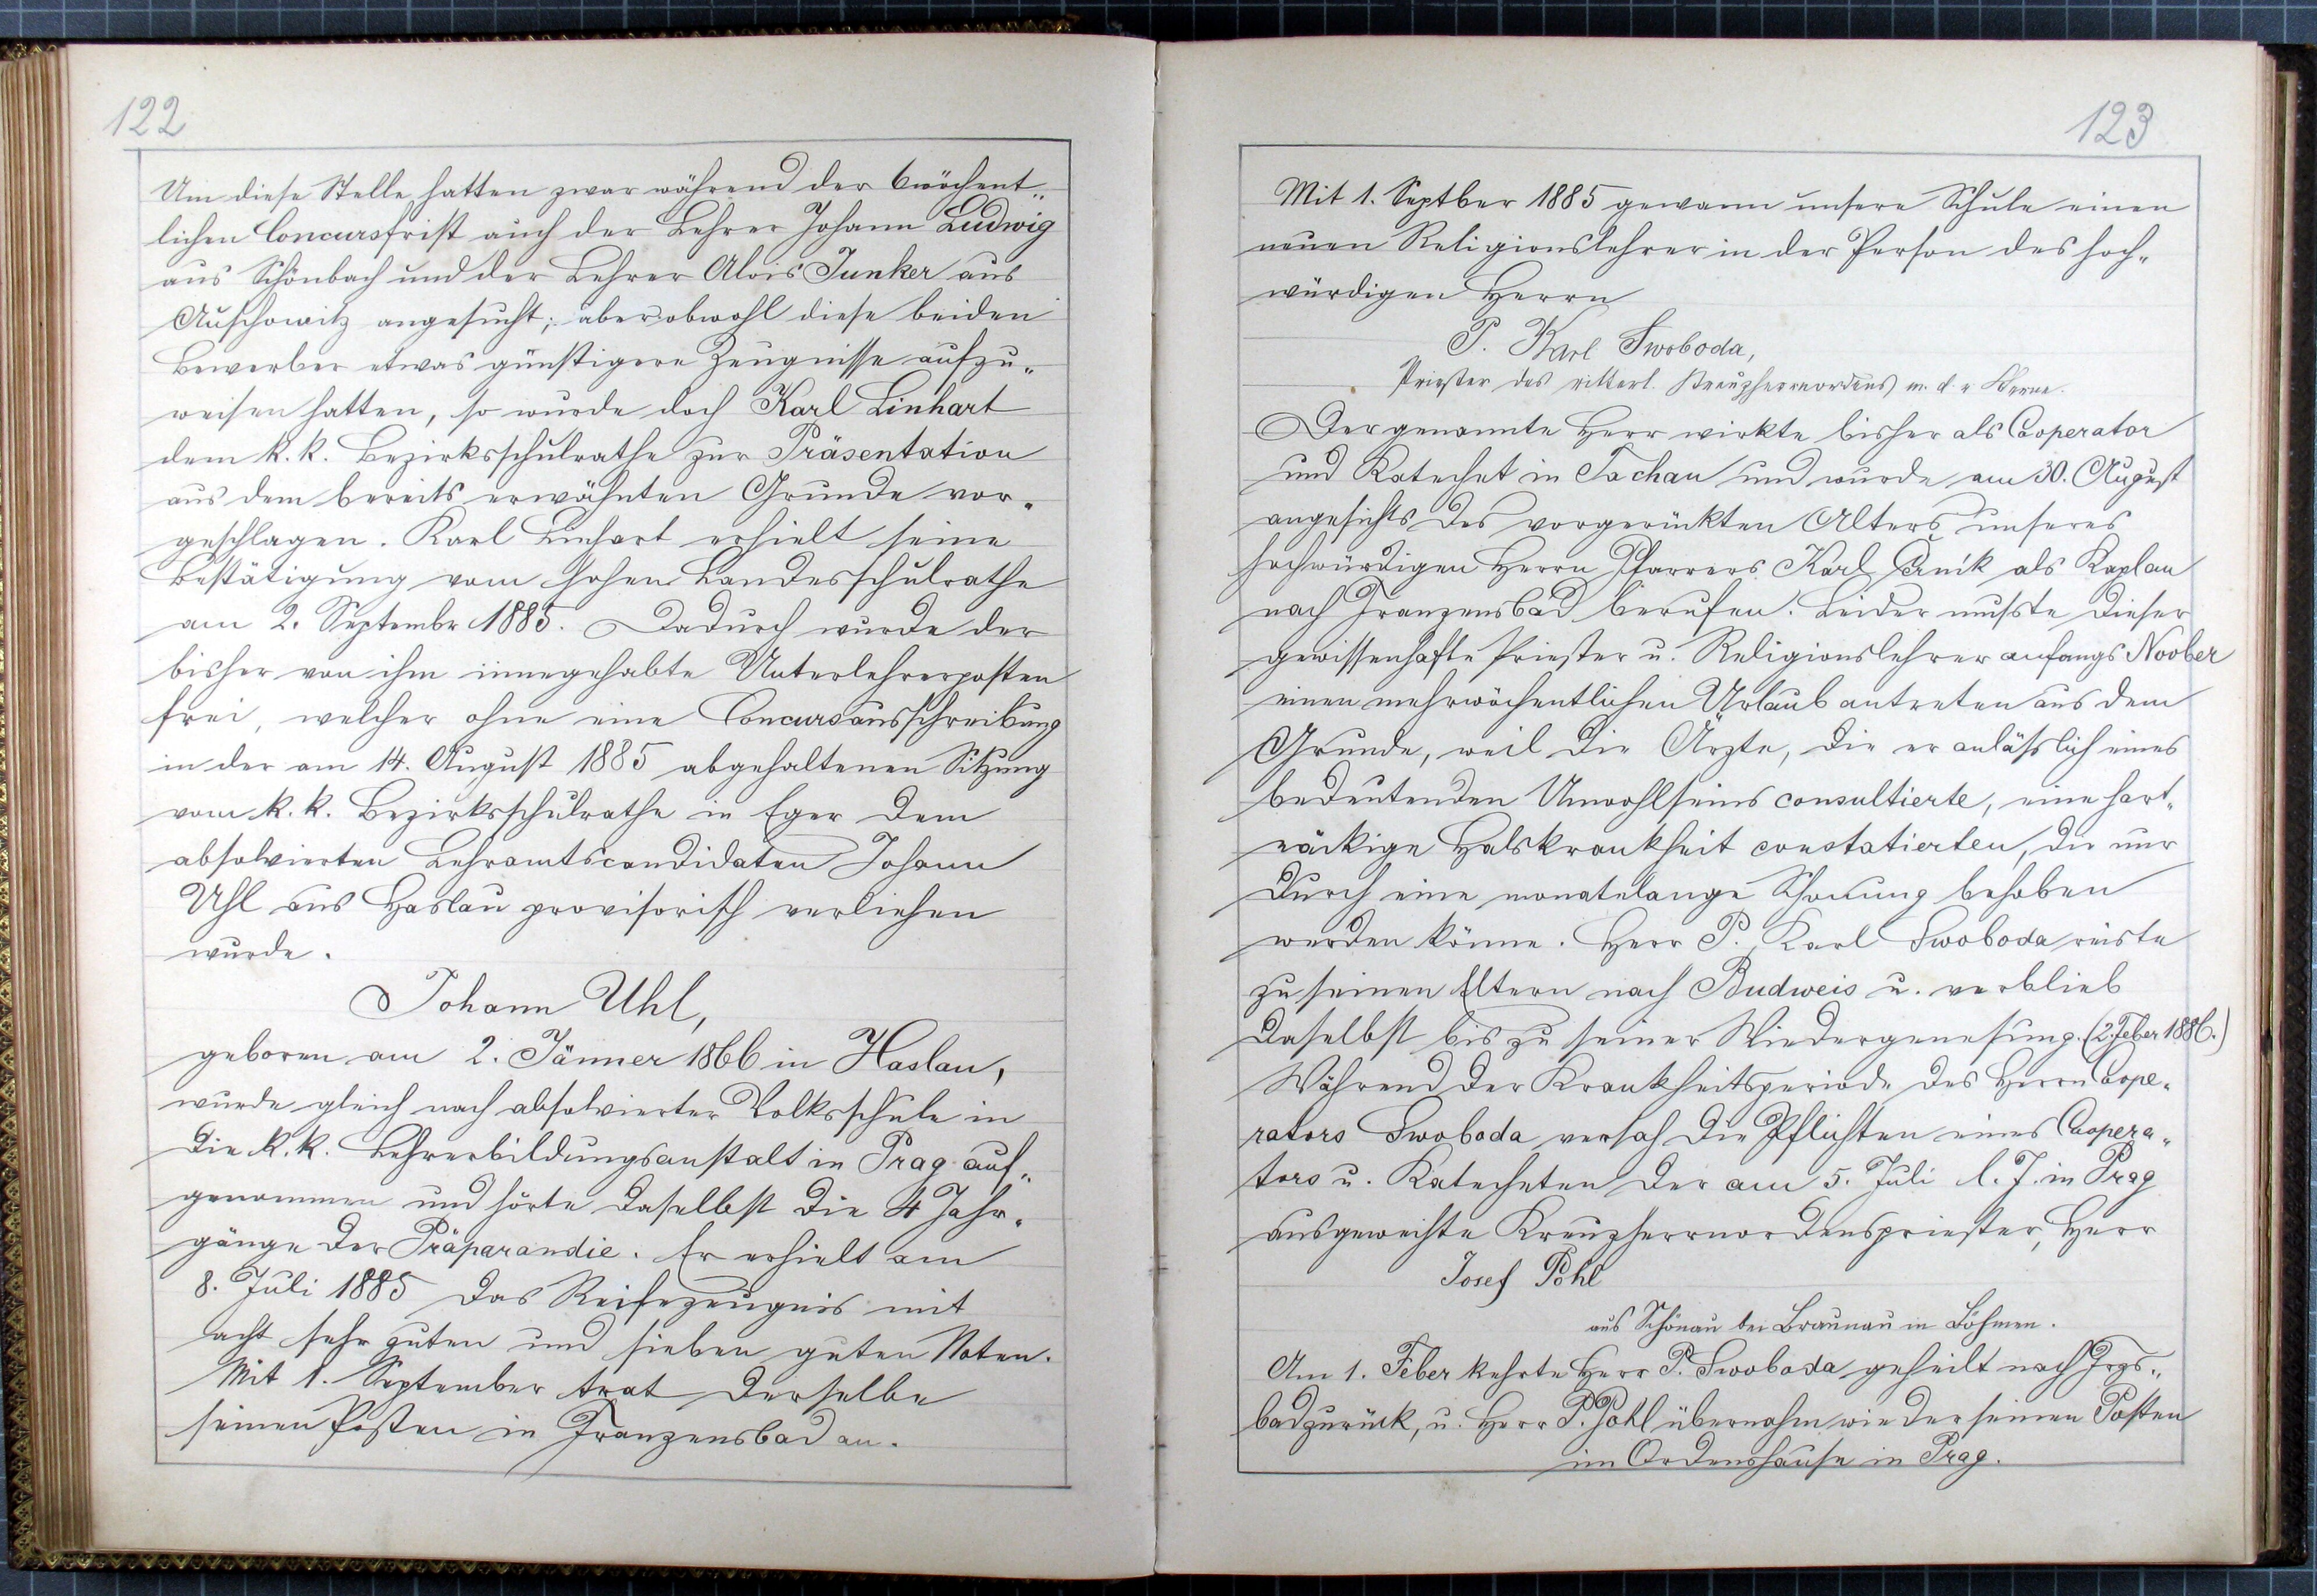 122
Um diese Stelle hatten zwar während der 6wöchent„
lichen Concursfrist auch der Lehrer Johann Ludwig
aus Schönbach und der Lehrer Alois Junker aus
Auschowitz angesucht; aber obwohl diese beiden
Bewerber etwas günstigere Zeugnisse aufzu„
weisen hatten, so wurde doch Karl Linhart
dem k. k. Bezirksschulrathe zur Präsentation
aus dem bereits erwähnten Grunde vor„
geschlagen. Karl Linhart erhielt seine
Bestätigung vom hohen Landesschulrathe
am 2. Septembr 1885. Dadurch wurde der
bisher von ihm innegehabte Unterlehrerposten
frei, welcher ohne eine Concursausschreibung
in der am 14. August 1885 abgehaltenen Sitzung
vom k. k. Bezirksschulrathe in Eger dem
absolvierten Lehramtscandidaten Johann
Uhl aus Haslau provisorisch verliehen
wurde.
Johann Uhl,
geboren am 2. Jänner 1866 in Haslau,
wurde gleich nach absolvierter Volksschule in
die k. k. Lehrerbildungsanstalt in Prag auf„
genommen und hörte daselbst die 4 Jahr„
gänge der Präparandie. Er erhielt am
8. Juli 1885 das Reifezeugnis mit
acht sehr guten und sieben guten Noten.
Mit 1. September trat derselbe
seinen Posten in Franzensbad an.
123
Mit 1. Septber 1885 gewann unsere Schule einen
neuen Religionslehrer in der Person des hoch„
würdigen Herrn
P. Karl Swoboda,
Priester des ritterl. Kreuzherrnordens m. d. r. Sterne.
Der genannte Herr wirkte bisher als Cooperator
und Katechet in Tachau und wurde am 30. August
angesichts des vorgerückten Alters unseres
hochwürdigen Herrn Pfarrers Karl als Kaplan
nach Franzensbad berufen. Leider musste dieser
gewissenhafte Priester u. Religionslehrer anfangs Novber
einen mehrwöchentlichen Urlaub antreten aus dem
Grunde, weil die Ärzte, die er anlässlich eines
bedeutenden Unwohlseins consultierte, eine hart„
näckige Halskrankheit constatierten, die nur
durch eine monatelange Schonung behoben
werden könne. Herr P. Karl Swoboda reiste
zu seinen Eltern nach Budweis u. verblieb
daselbst bis zu seiner Wiedergenesung. (2. Feber 1886.)
Während der Krankheitsperiode des Herrn Coope„
rators Swoboda versah die Pflichten eines Coopera„
tors u. Katecheten der am 5. Juli l. J. in Prag
ausgeweihte Kreuzherrnordenspriester, Herr
Josef Pohl
aus Schönau bei Braunau in Böhmen.
Am 1. Feber kehrte Herr P. Swoboda geheilt nach Frzs„
bad zurück, u. Herr P. Pohl übernahm wieder seinen Posten
im Ordenshause in Prag.